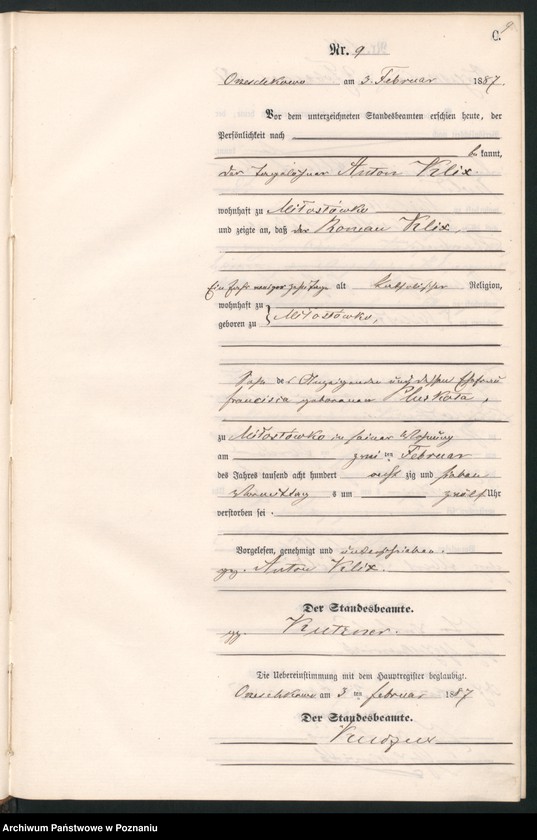 9
C.
Nr. 9
am 3. Februar 1887.
Vor dem unterzeichneten Standesbeamten erschien heute, der
Persönlichkeit nach
be kannt,
der Tagelöhner Anton Klix
wohnhaft zu Miłostówko
und zeigte an, daß der Roman Klix,
Ein Jahr weniger alt katholischer Religion,
wohnhaft zu
geboren zu } Miłostówko,
Sohn des Anzeigenden und dessen Ehefrau
geborenen Pluskota,
zu Miłostówko in seiner Wohnung
am zwei ten Februar
des Jahres tausend acht hundert acht zig und sieben
Vormittag s um zwölf Uhr
verstorben sei.
Vorgelesen, genehmigt und unterschrieben.
gez. Anton Klix.
Der Standesbeamte.
gez.
Die Uebereinstimmung mit dem Hauptregister beglaubigt.
am 3 ten Februar 1887
Der Standesbeamte.
Archiwum Państwowe w Poznaniu